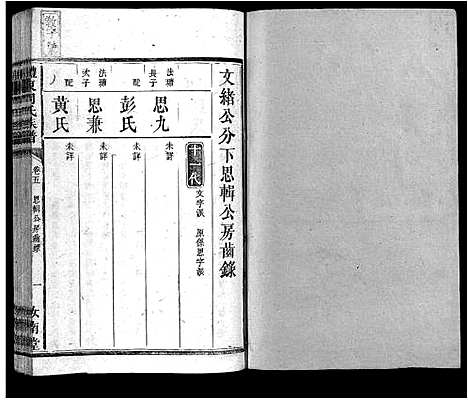 文緒公分下思輯公房齒錄
十一代
文字派 原保思字派
法瓊長子
思九
未詳
配
彭氏
未詳
法瓊次子
思兼
未詳
配
黃氏
未詳
周氏族譜
卷五
思輯公房齒錄
一
汝南堂